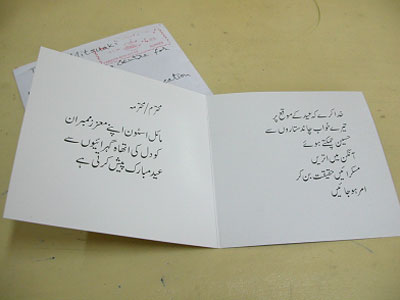 محترم/محترمہ
مائل اسٹون اپنے معزز ممبران
کو دل کی اتھاہ گہرائیوں سے
عید مبارک پیش کرتی ہے
خدا کرے کہ عید کے موقع پر
تیرے خواب چاند ستاروں سے
حسین چمکتے ہوئے
آنگن میں اتریں
مسکرائیں حقیقت بن کر
امر ہو جائیں